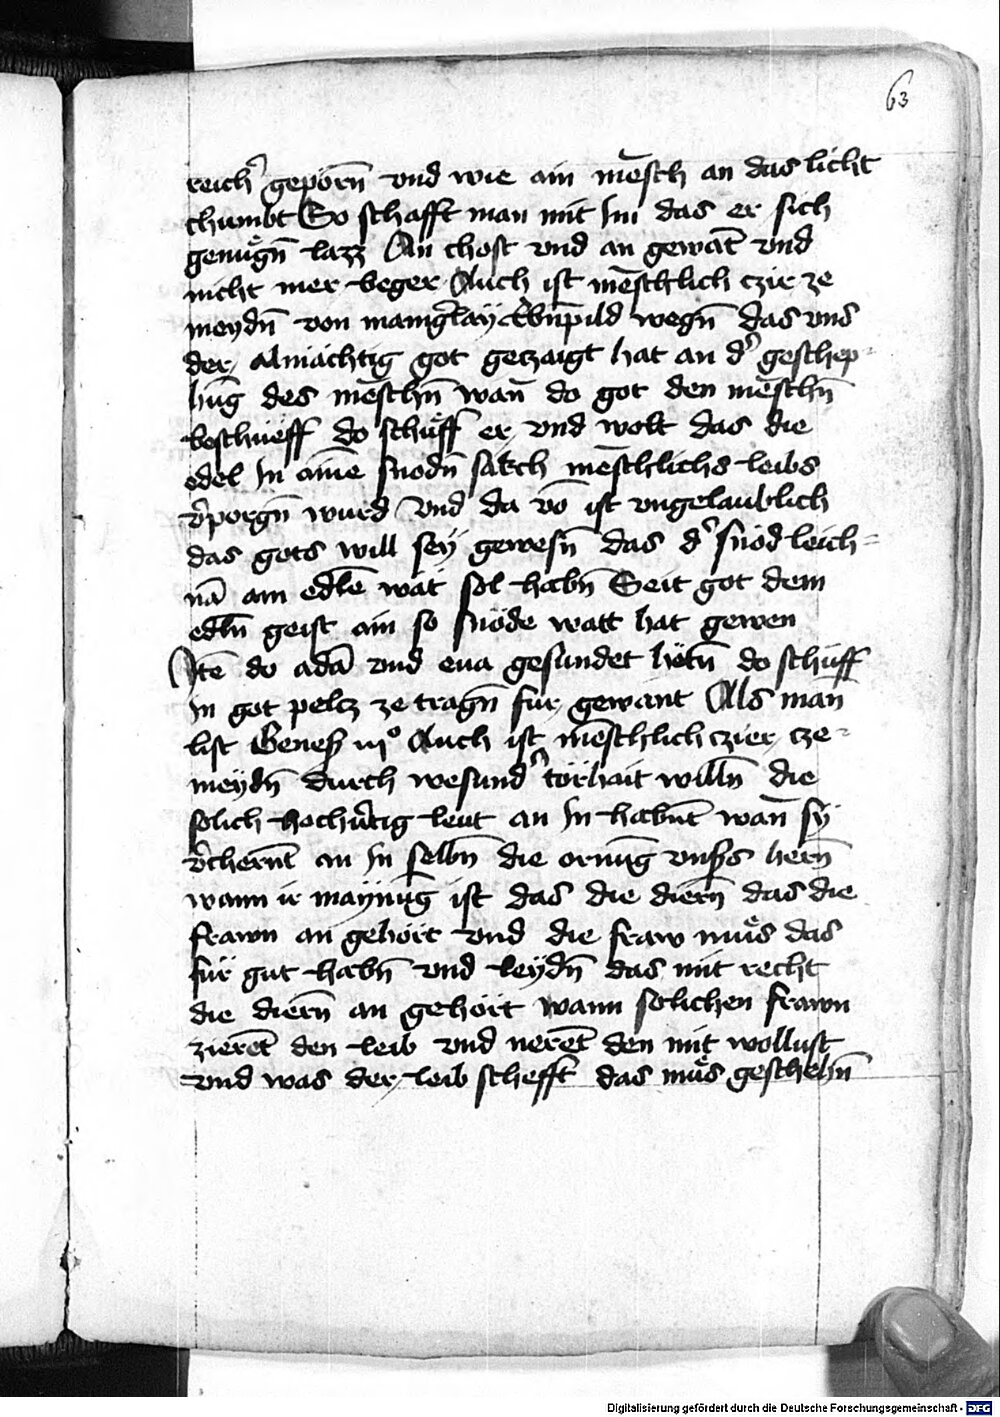 63
reich᷑ geporn̄ vnd wie ain mēsch an das licht
chumbt So schafft man mit Im das er sich
genuͤgn̄ lazz An chost vnd an gewāt vnd
nicht mer beger Auch ist mēschlich czir ze
meydn̄ von manig᷑lay Ebn̄pild wegn̄ das vns
der almächtig got geczaigt hat an d᷑ geschep-
hūg des mēschn̄ wan̄ do got den mēschn̄
beschueff do schuͤff er vnd wolt das die
edel In aīne snodn̄ sakch mēschlichs leibs
v᷑porgn̄ wurd Vnd da vō ist vngelaublich
das gots will sey gewesn̄ das d᷑ snöd leich-
nā am edlē wat sol habn̄ Seit got dem
edln̄ geist ain so snöde watt hat gewen
Itē do adā vnd eua gesundet hetn̄ do schuff
In got pelcz ze tragn̄ fur gewant Als man̄
list Genes̄ iijͦ Auch ist mēschlich czier cze-
meydn̄ durch wesund᷑ törhait willn̄ die
solich hochv᷑tig leut an In habnt̄ wan̄ sy
v᷑chernt̄ an In selbn̄ die ornūg vnsers hern̄
wann ir maynūg ist das die diern̄ das die
frawn an gehört vnd die fraw muͤs das
für gut habn̄ vnd leydn̄ das mit recht
die diern̄ an gehört wann solichen frawn
zierēt den leib vnd nerēt den mit wollust
vnd was der leib schefft das muͤs geschehn̄
Digitalisierung gefördert durch die Deutsche Forschungsgemeinschaft - DFG